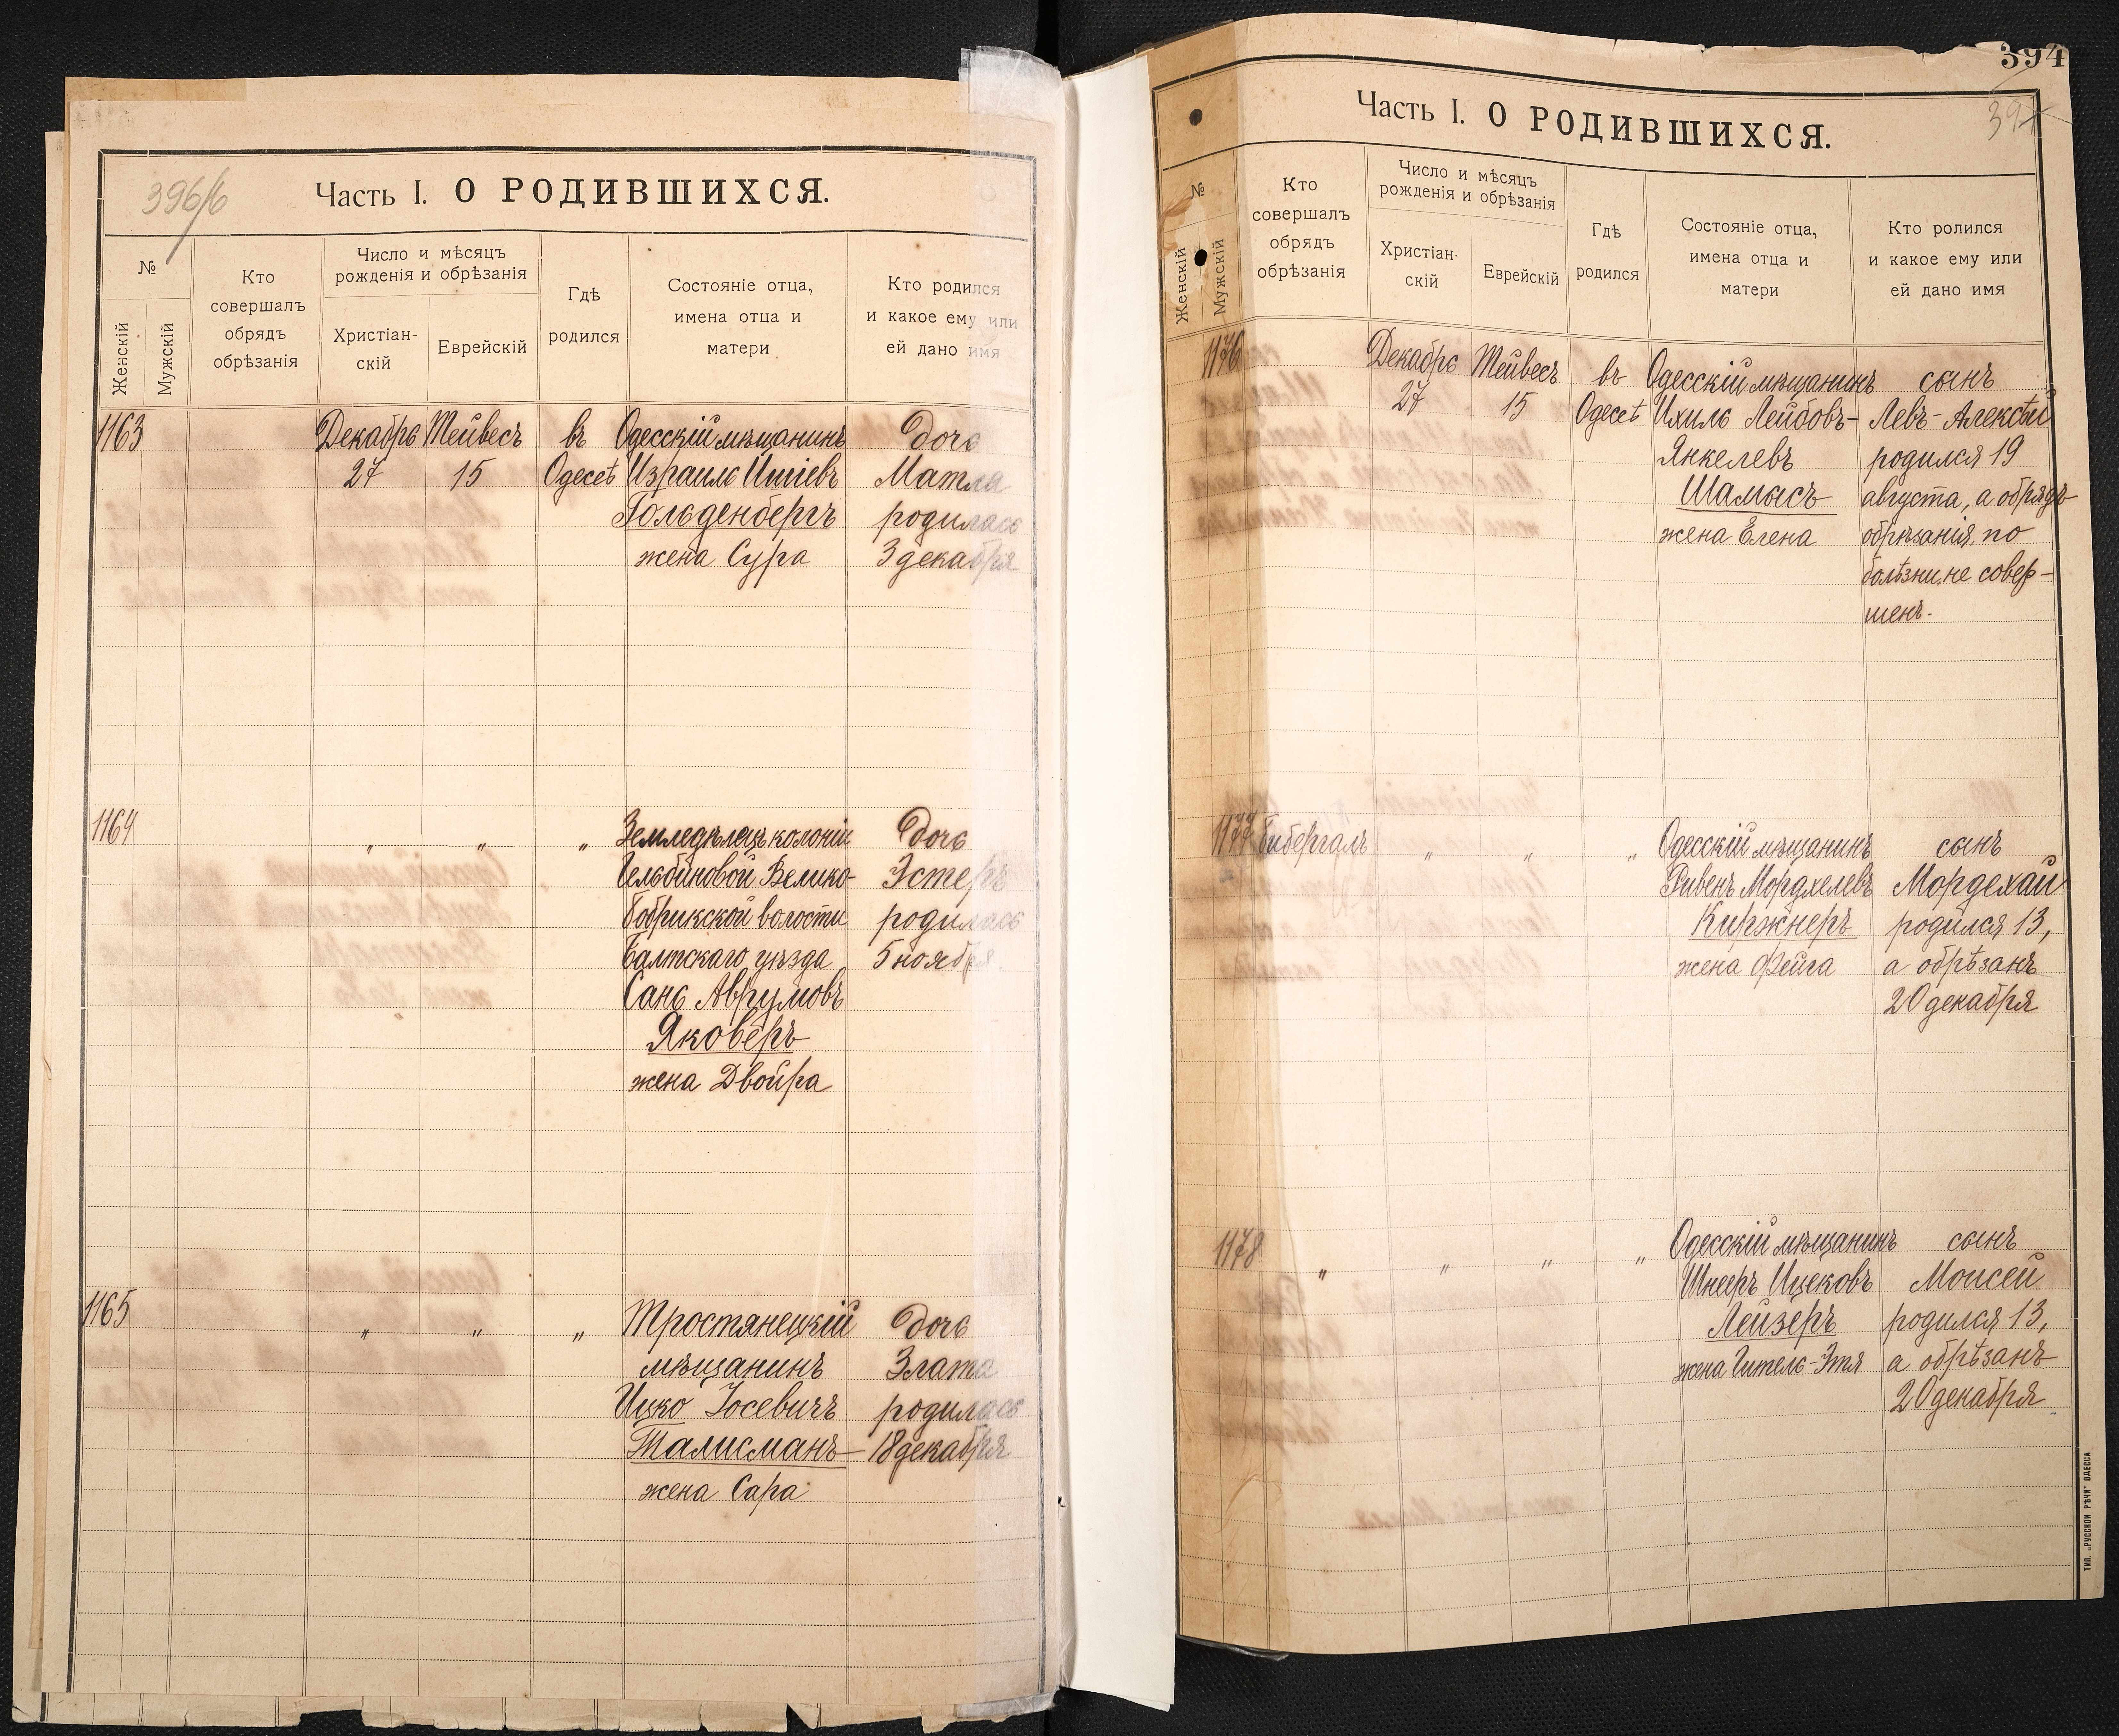 396/б
Часть I. О РОДИВШИХСЯ.
№
Женскій
Мужскій
Кто
совершалъ
обрядъ
обрѣзанія
Число и мѣсяцъ
рожденія и обрѣзанія
Христіан-
скій
Еврейскій
Гдѣ
родился
Состояніе отца,
имена отца и
матери
Кто родился
и какое ему или
ей дано имя
1163
Декабрь Тейвесъ въ Одесскій мѣщанинъ дочь
27 15 Одессѣ Израиль Итіевъ Матля
Гольденбергъ родилась
жена Сура 3 декабря
1164
„ „ „ Земледѣлецъ колоніи дочь
Гельбиновой Велико- Эстеръ
бобрикской волости родилась
Балтскаго уѣзда 5 ноября
Сань Аврумовъ
Яковеръ
жена Двойра
1165
„ „ „ Тростянецкій дочь
мѣщанинъ Злата
Ицко Іосевичъ родилась
Талисманъ 18 декабря
жена Сара
394
397
Часть I. О РОДИВШИХСЯ.
№
Женскій
Мужскій
Кто
совершалъ
обрядъ
обрѣзанія
Число и мѣсяцъ
рожденія и обрѣзанія
Христіан-
скій
Еврейскій
Гдѣ
родился
Состояніе отца,
имена отца и
матери
Кто ролился
и какое ему или
ей дано имя
1176
Декабрь Тейвесъ въ Одесскій мѣщанинъ сынъ
27 15 Одессѣ Ихиль Лейбовъ- Левъ-Алексѣй
Янкелевъ родился 19
Шамисъ августа, а обрядъ
жена Елена обрѣзанія по
болѣзни не совер-
шенъ.
1177 Бибергаль „ „ „ Одесскій мѣщанинъ сынъ
Рувенъ Мордхелевъ Мордехай
Киржнеръ родился 13,
жена Фейга а обрѣзанъ
20 декабря
1178 „ „ „ „ Одесскій мѣщанинъ сынъ
Шнееръ Ицековъ Моисей
Лейзеръ родился 13,
жена Гитель-Этя а обрѣзанъ
20 декабря
ТИП. „РУССКОЙ РѢЧИ" ОДЕССА